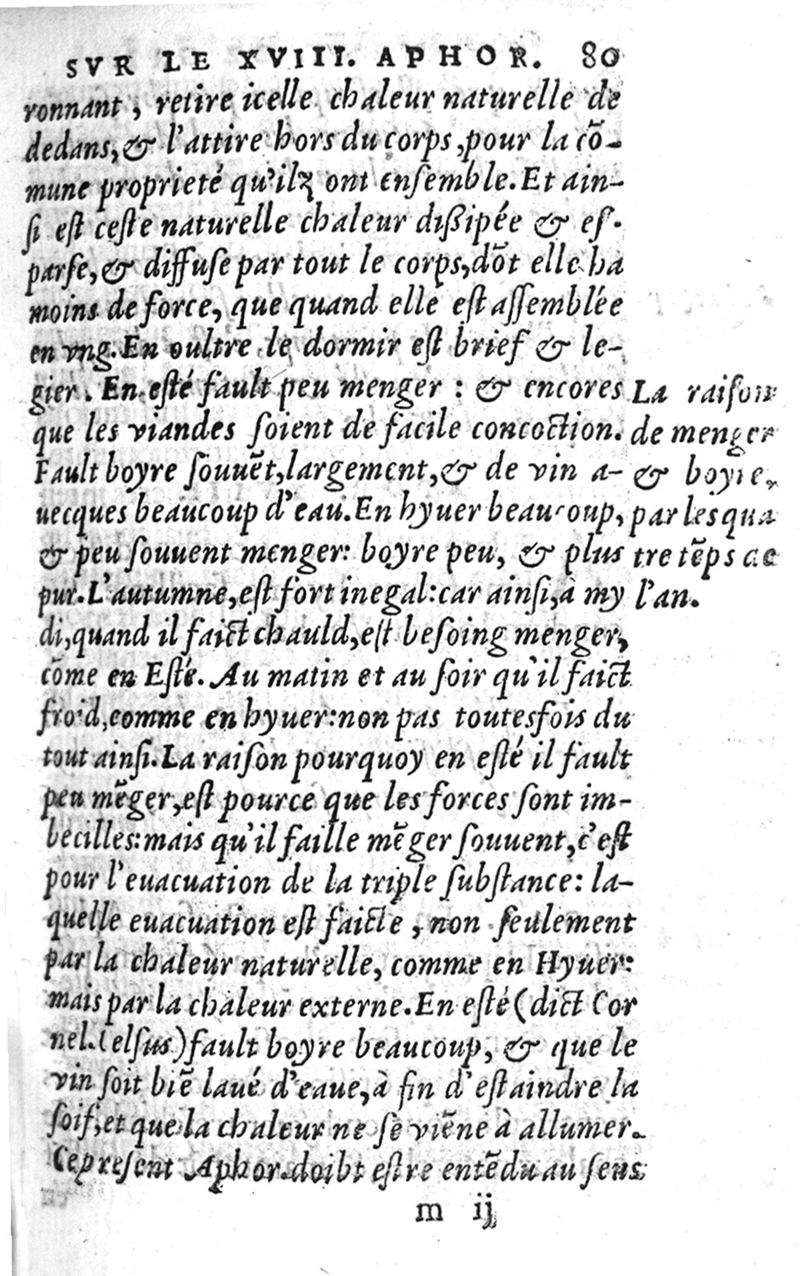 SVR LE XVIII. APHOR. 80
ronnant, retire icelle chaleur naturelle de
dedans, & l'attire hors du corps, pour la cō-
mune proprieté qu'ilz ont ensemble. Et ain-
si est ceste naturelle chaleur dißipée & es-
parse, & diffuse par tout le corps, dōt elle ha
moins de force, que quand elle est assemblée
en vng. En oultre le dormir est brief & le-
gier. En esté fault peu menger : & encores
que les viandes soient de facile concoction.
Fault boyre souuēt, largement, & de vin a-
uecques beaucoup d'eau. En hyuer beaucoup,
& peu souuent menger: boyre peu, & plus
pur. L'autumne, est fort inegal: car ainsi, à my
di, quand il faict chauld, est besoing menger,
cōme en Esté. Au matin et au soir qu'il faict
froid, comme en hyuer: non pas toutesfois du
tout ainsi. La raison pourquoy en esté il fault
peu mēger, est pource que les forces sont im-
becilles: mais qu'il faille mēger souuent, c'est
pour l'euacuation de la triple substance: la-
quelle euacuation est faicte, non seulement
par la chaleur naturelle, comme en Hyuer:
mais par la chaleur externe. En esté (dict Cor
nel. Celsus) fault boyre beaucoup, & que le
vin soit biē laué d'eaue, à fin d'estaindre la
soif, et que la chaleur ne se viēne à allumer.
Ce present Aphor. doibt estre entēdu au sens
m ij
La raison
de menger
& boyre,
par les qua
tre tēps de
l'an.